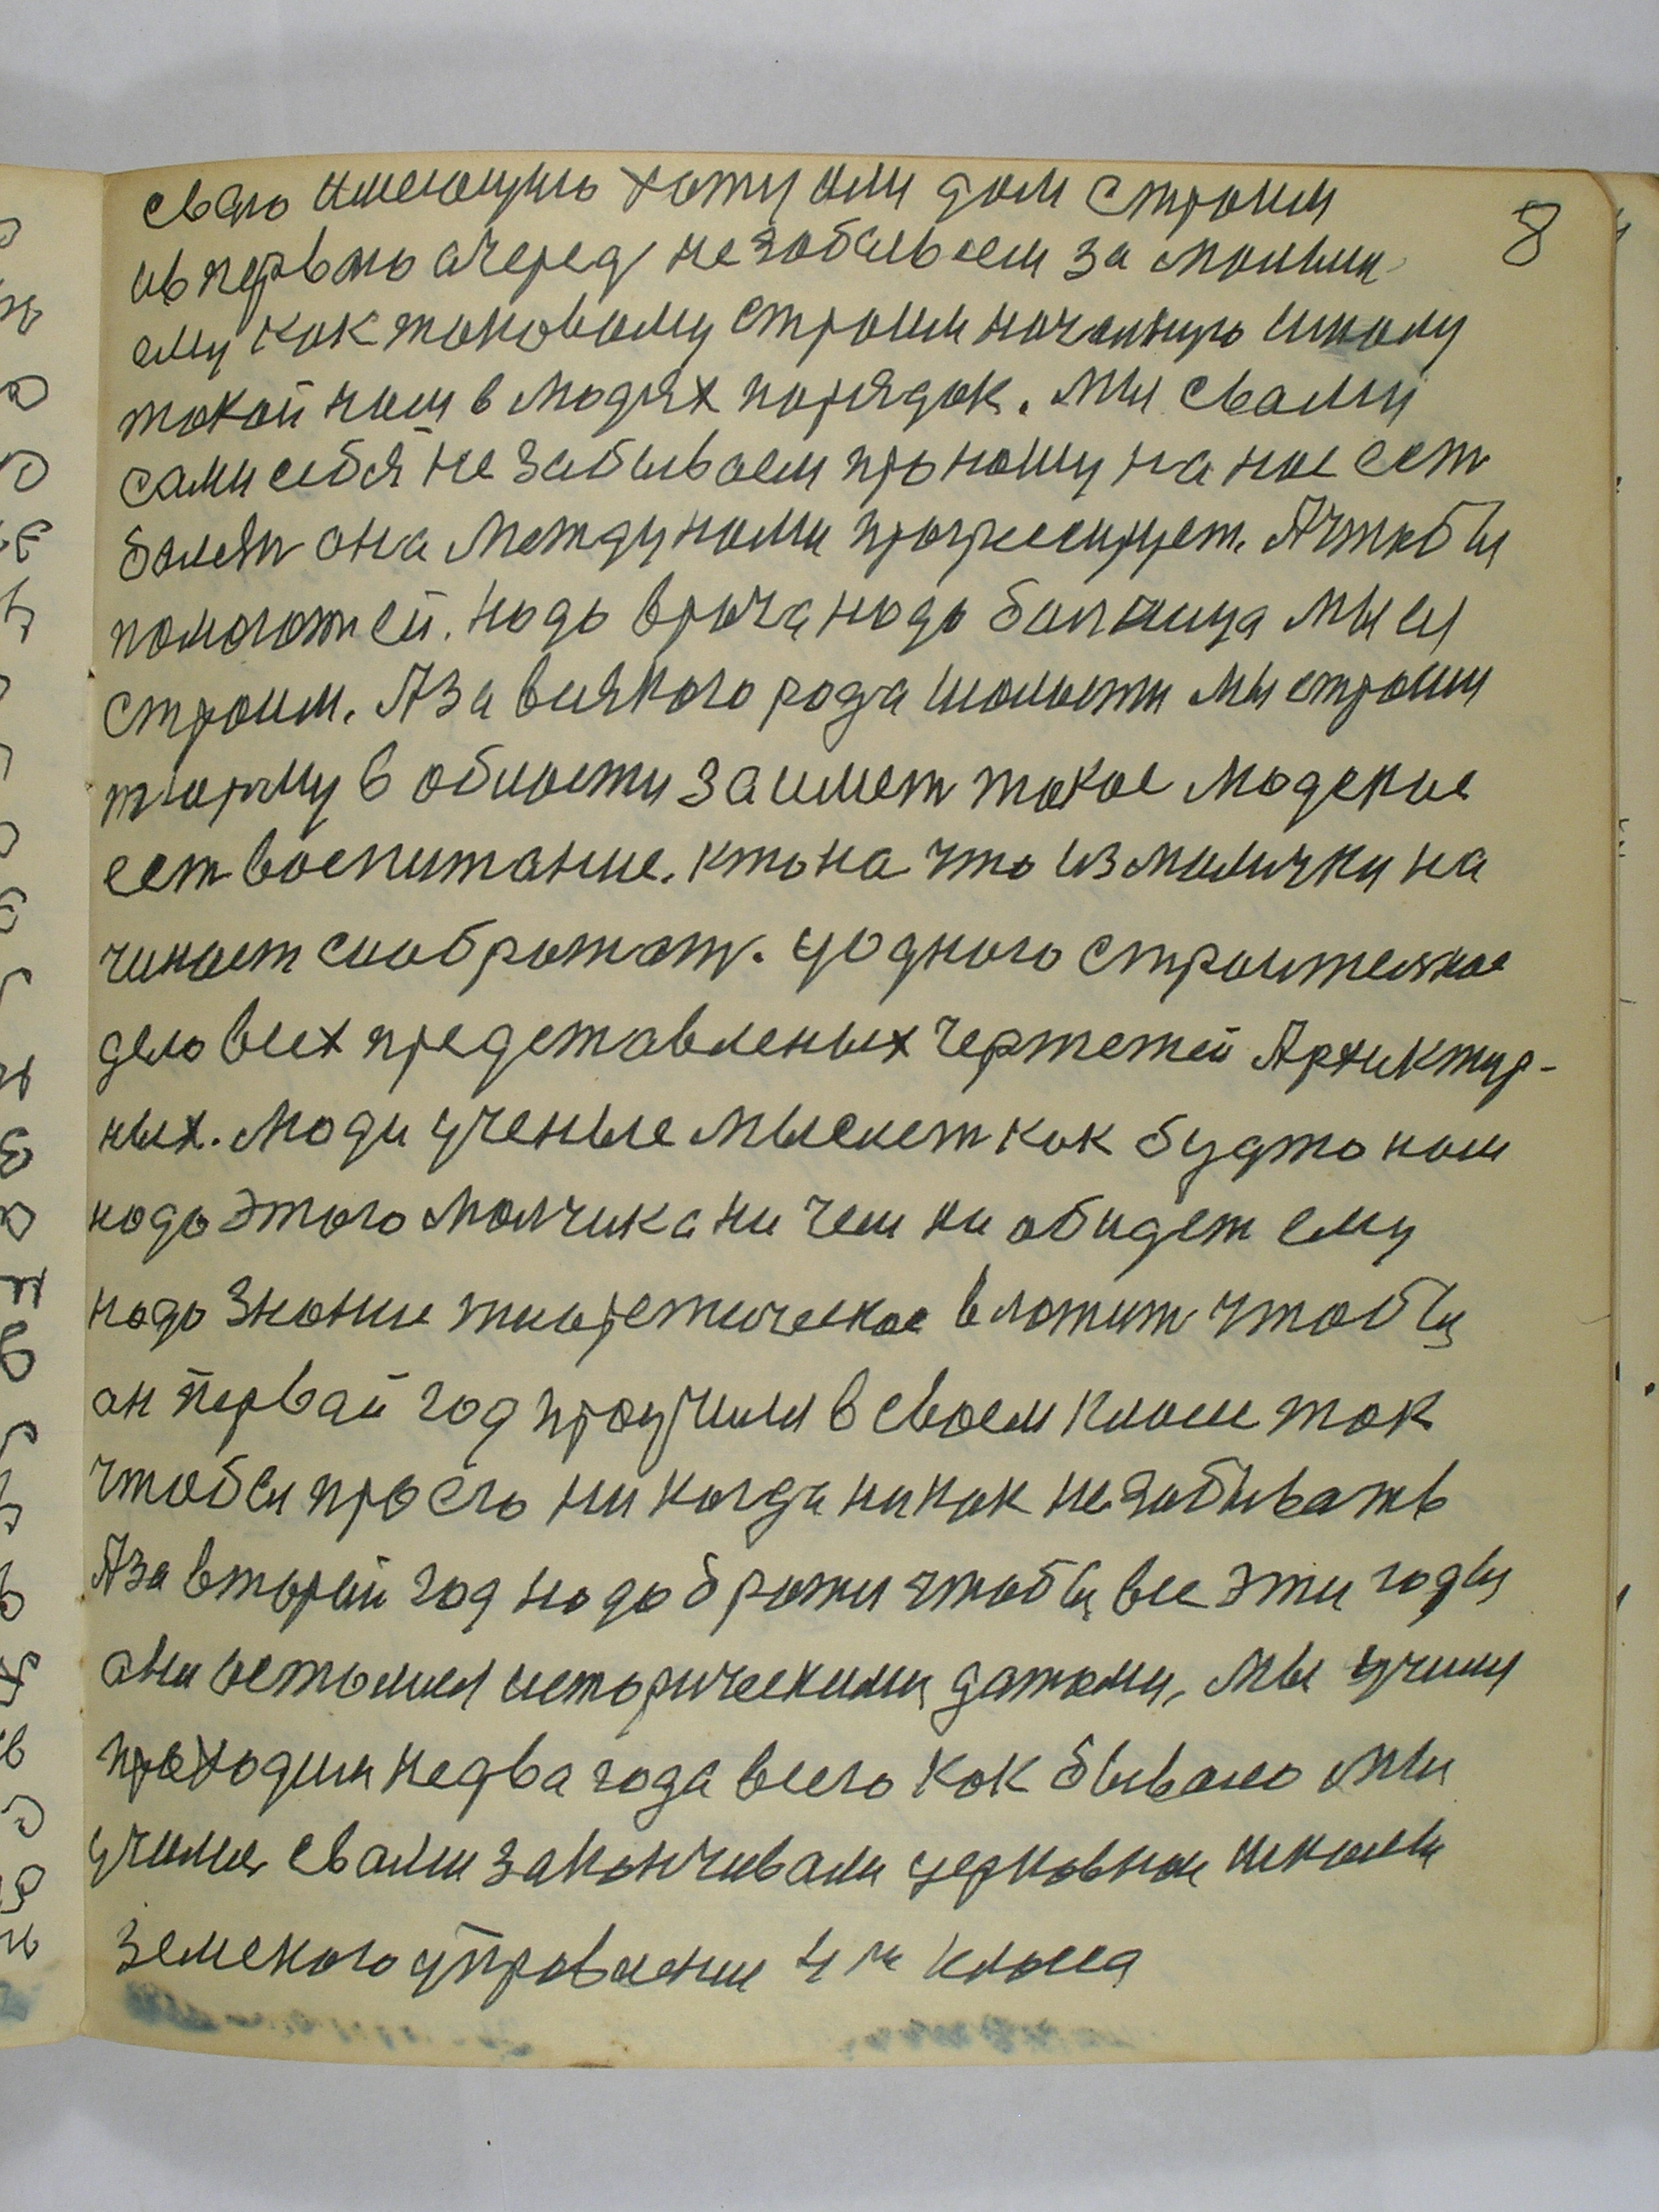 8
сваю имеющую хату или дом строим
ив первою очеред незабываем за малым
ему как таковому строим начальную школу
такой наш в людях порядок. Мы свами
сами себя не забываем про нашу на нас ест
болезн она между нами прогресирует. Ачтобы
помогат ей. надо врача надо больница мы ей
строим. Аза всякого рода шалости мы строим
тюрму в области за имет такое людское
ест воспитание. кто на что измалички на
чинает соображат. уодного строителное
дело всех представленых чертежей Архиктур-
ных. Люди ученые мыслет как будто нам
надо этого малчика ни чем ни обидет ему
надо знание тиоретическое вложит чтобы
он первай год проучился в своем класе так
чтобы про его ни когда никак не забывать
Аза второй год надо браться чтобы все эти годы
они осталися историческими датами, мы учим
проходим недва года всего как бывало мы
училися свами заканчивали церковнаи школы
земского управления 4 ри класса